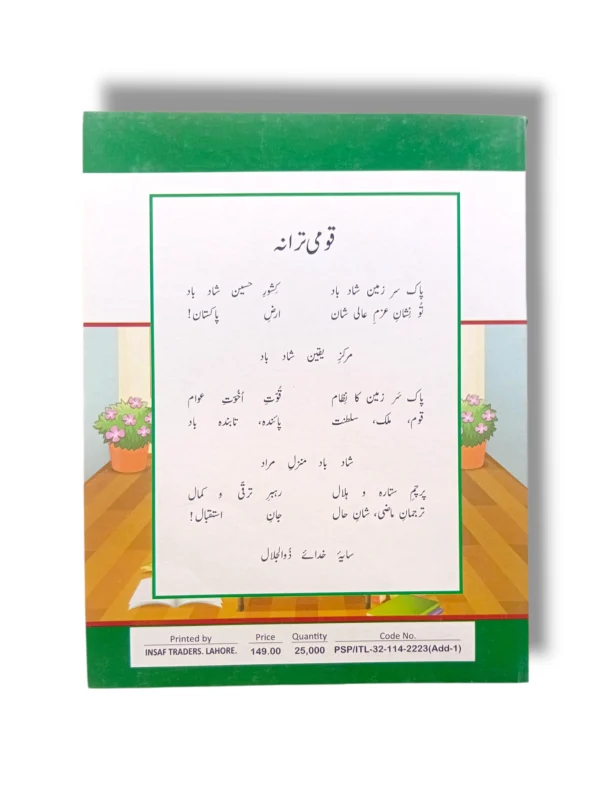 قومی ترانہ
پاک سر زمین شاد باد کِشورِ حسین شاد باد
تُو نِشانِ عزمِ عالی شان ارضِ پاکستان!
مرکزِ یقین شاد باد
پاک سَر زمین کا نِظام قُوّتِ اُخُوّتِ عوام
قوم، ملک، سلطنت پائندہ، تابندہ باد
شاد باد منزلِ مراد
پرچمِ ستارہ و ہلال رہبرِ ترقّی و کمال
ترجمانِ ماضی، شانِ حال جانِ استقبال!
سایۂ خدائے ذُوالجلال
Printed by Price Quantity Code No.
INSAF TRADERS. LAHORE. 149.00 25,000 PSP/ITL-32-114-2223(Add-1)